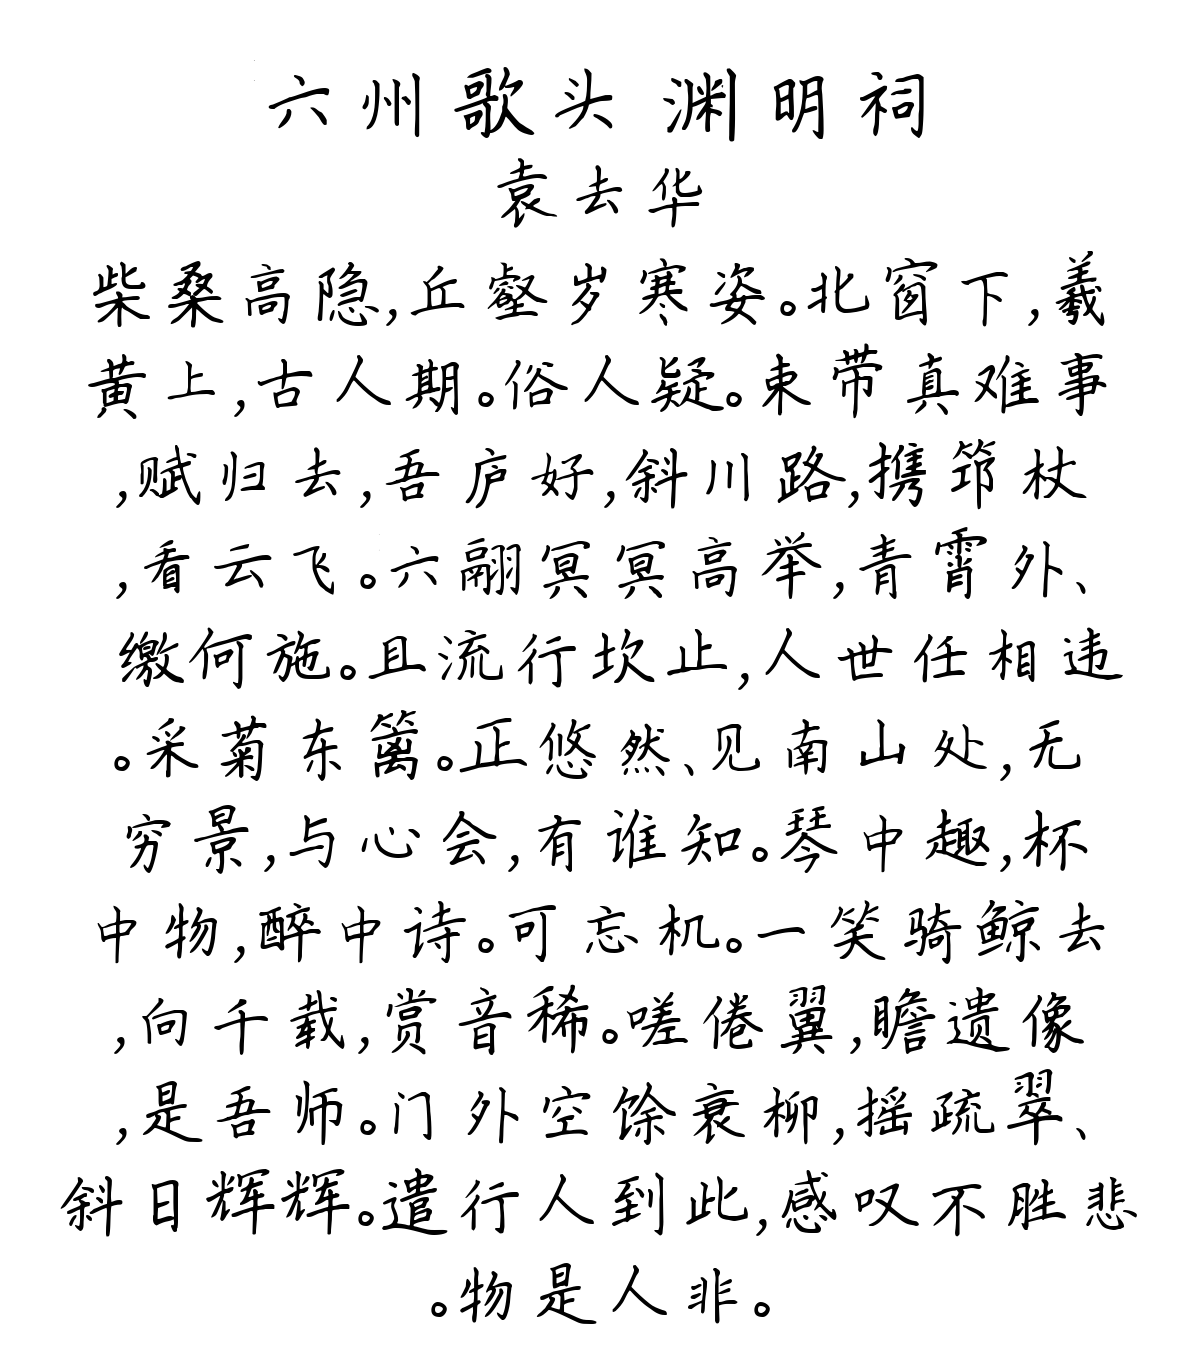 六州歌头 渊明祠
袁去华
柴桑高隐,丘壑岁寒姿。北窗下,羲
黄上,古人期。俗人疑。束带真难事
,赋归去,吾庐好,斜川路,携筇杖
,看云飞。六翮冥冥高举,青霄外、
缴何施。且流行坎止,人世任相违
。采菊东篱。正悠然、见南山处,无
穷景,与心会,有谁知。琴中趣,杯
中物,醉中诗。可忘机。一笑骑鲸去
,向千载,赏音稀。嗟倦翼,瞻遗像
,是吾师。门外空馀衰柳,摇疏翠、
斜日辉辉。遣行人到此,感叹不胜悲
。物是人非。